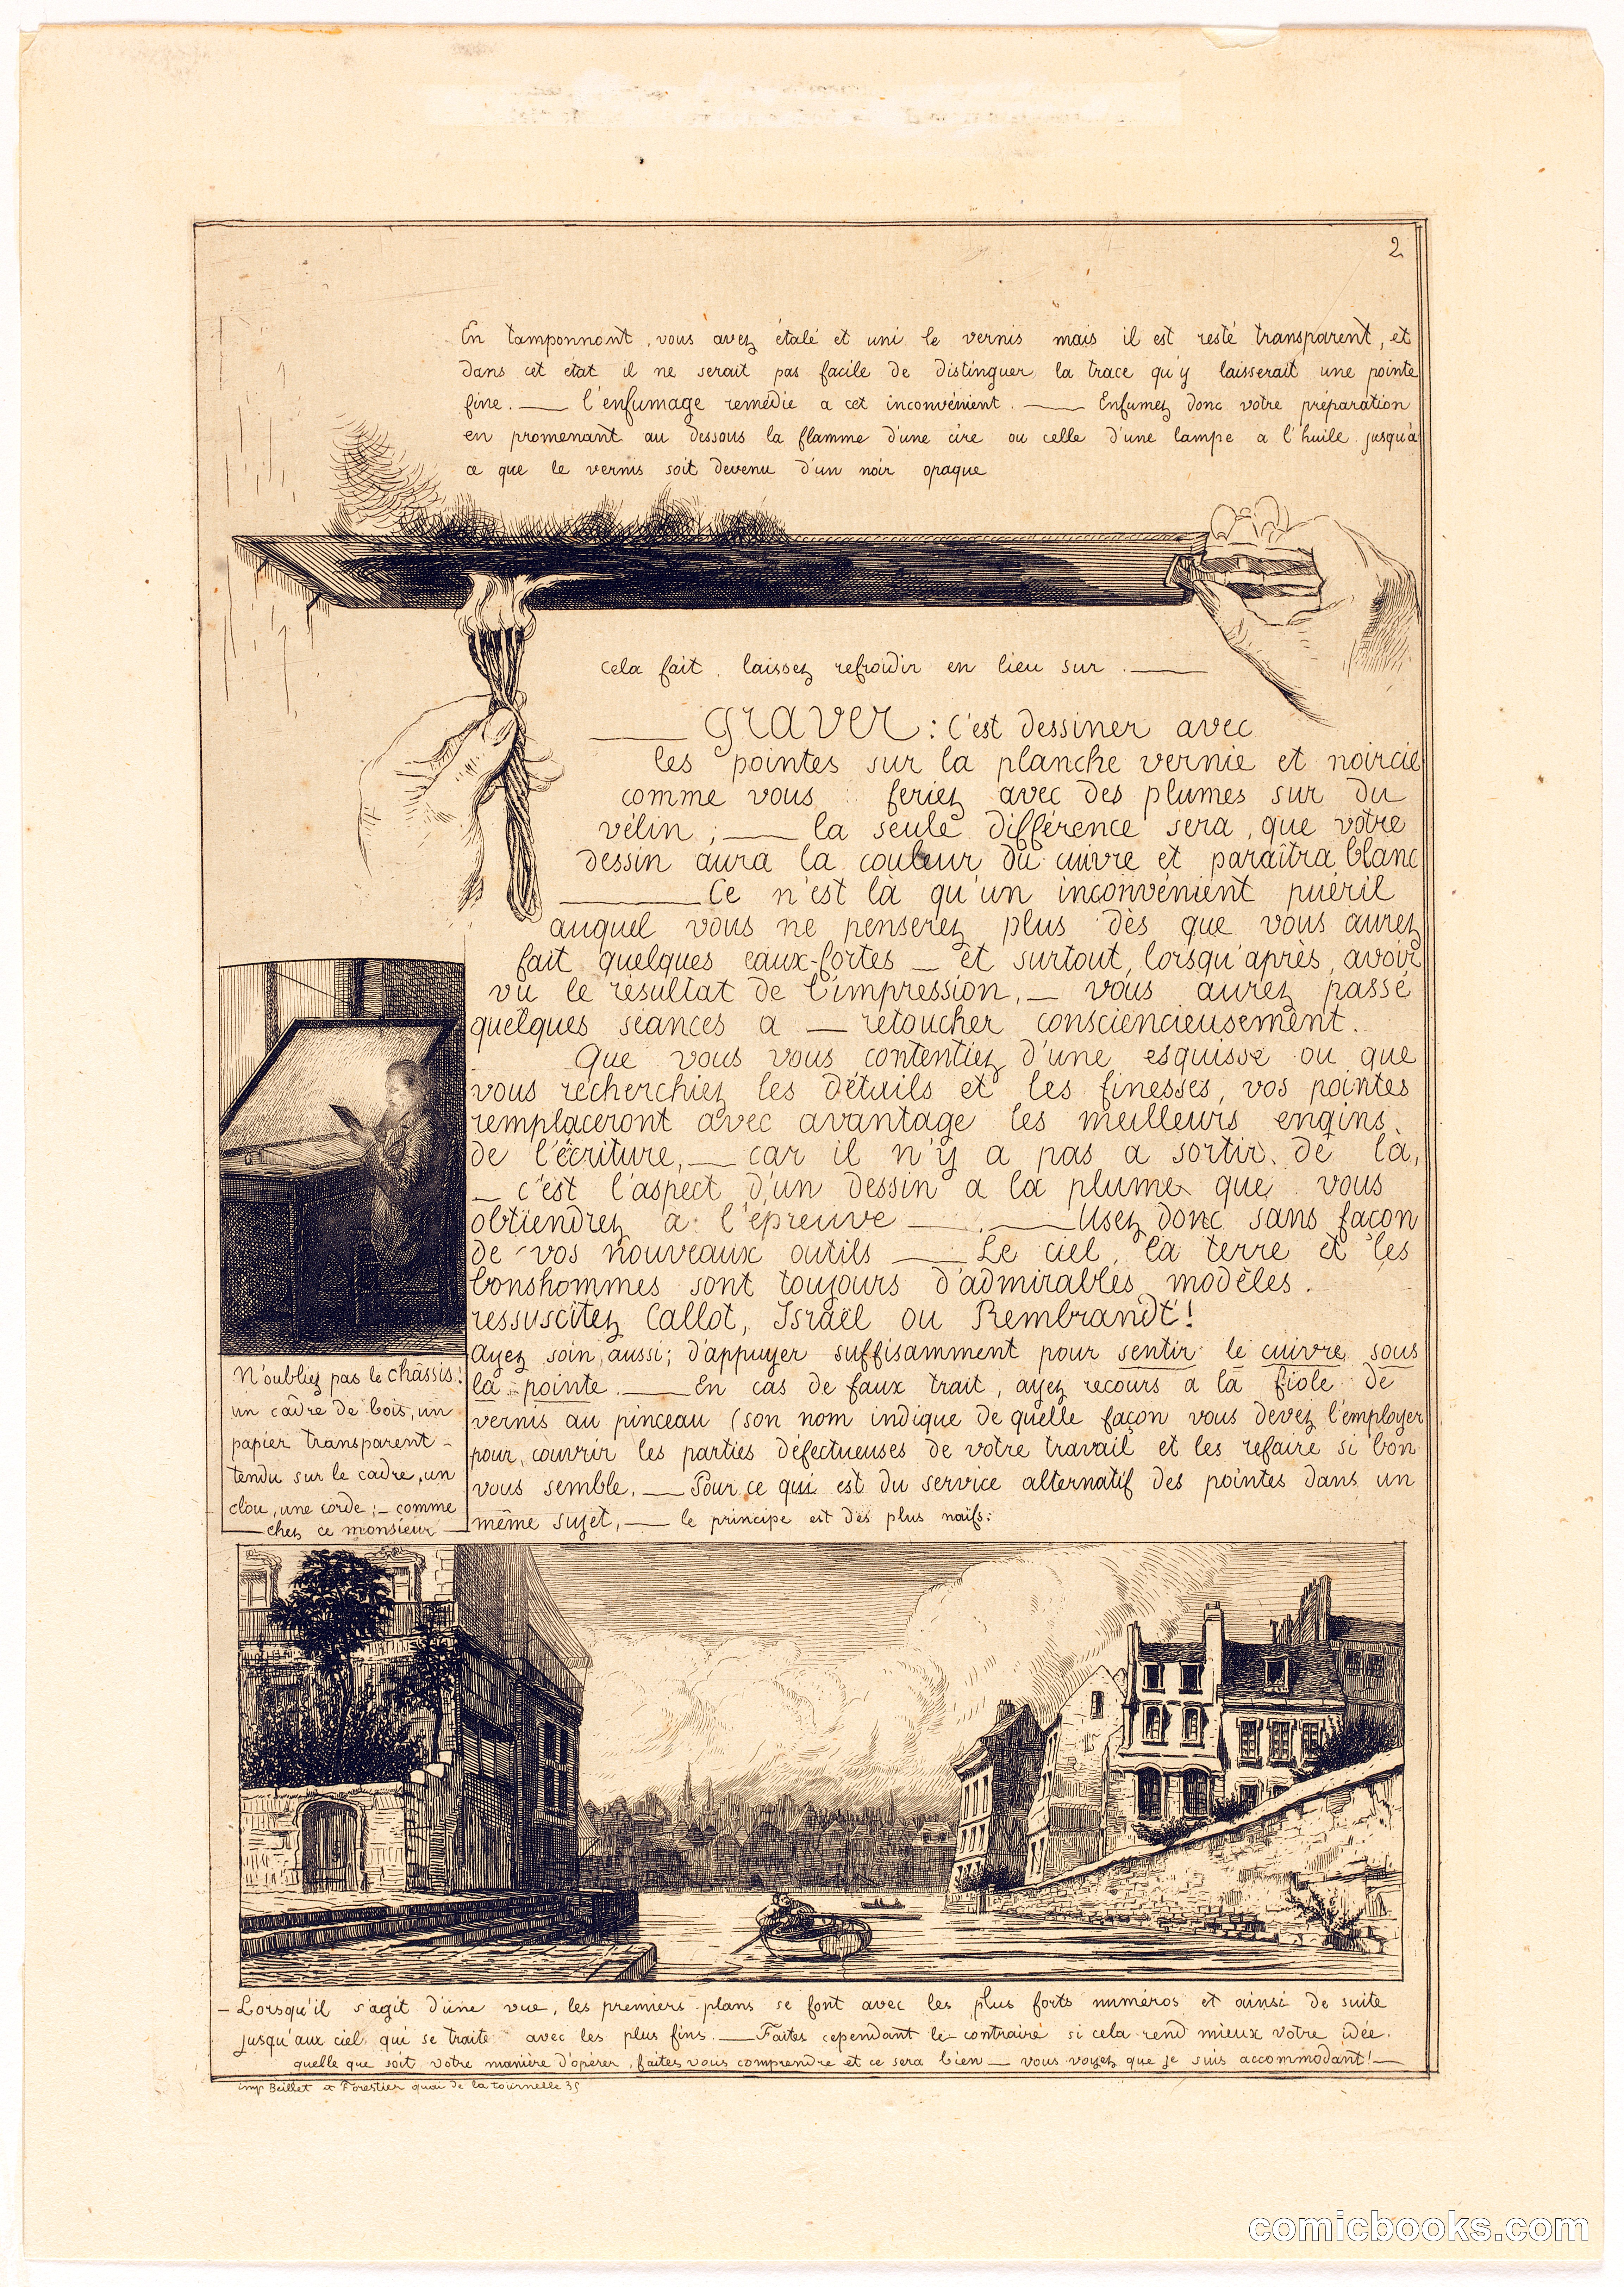 2
En tamponnant, vous avez étalé et uni le vernis mais il est resté transparent, et
dans cet état il ne serait pas facile de distinguer la trace qu'y laisserait une pointe
fine. — l'enfumage remédie a cet inconvénient. — Enfumez donc votre préparation
en promenant au dessous la flamme d'une cire ou celle d'une lampe a l'huile jusqu'à
ce que le vernis soit devenu d'un noir opaque
Cela fait, laissez refroidir en lieu sur. —
— Graver : C'est dessiner avec
les pointes sur la planche vernie et noircie
comme vous feriez avec des plumes sur du
vélin ; — la seule différence sera, que votre
dessin aura la couleur du cuivre et paraîtra blanc
— Ce n'est là qu'un inconvénient puéril
auquel vous ne penserez plus dès que vous aurez
fait quelques eaux-fortes — et surtout, lorsqu'après, avoir
vu le résultat de l'impression, — vous aurez passé
quelques séances a — retoucher consciencieusement.
Que vous vous contentiez d'une esquisse ou que
vous recherchiez les détails et les finesses, vos pointes
remplaceront avec avantage les meilleurs engins
de l'écriture, — car il n'y a pas a sortir de là,
— c'est l'aspect d'un dessin a la plume que vous
obtiendrez a l'épreuve — . — Usez donc sans façon
de vos nouveaux outils — Le ciel, la terre et les
bonshommes sont toujours d'admirables modèles.
ressuscitez Callot, Israël ou Rembrandt !
Ayez soin aussi ; d'appuyer suffisamment pour sentir le cuivre sous
la pointe. — En cas de faux trait, ayez recours a la fiole de
vernis au pinceau (son nom indique de quelle façon vous devez l'employer
pour couvrir les parties défectueuses de votre travail et les refaire si bon
vous semble. — Pour ce qui est du service alternatif des pointes dans un
même sujet, — le principe est des plus naïfs :
N'oubliez pas le châssis !
un cadre de bois, un
papier transparent -
tendu sur le cadre, un
clou, une corde ; - comme
— chez ce monsieur —
— Lorsqu'il s'agit d'une vue, les premiers plans se font avec les plus forts numéros et ainsi de suite
jusqu'aux ciel qui se traite avec les plus fins. — Faites cependant le contraire si cela rend mieux votre idée.
quelle que soit votre manière d'opérer, faites vous comprendre et ce sera bien — vous voyez que je suis accommodant ! —
imp Beillet et Forestier quai de la tournelle 35
comicbooks.com